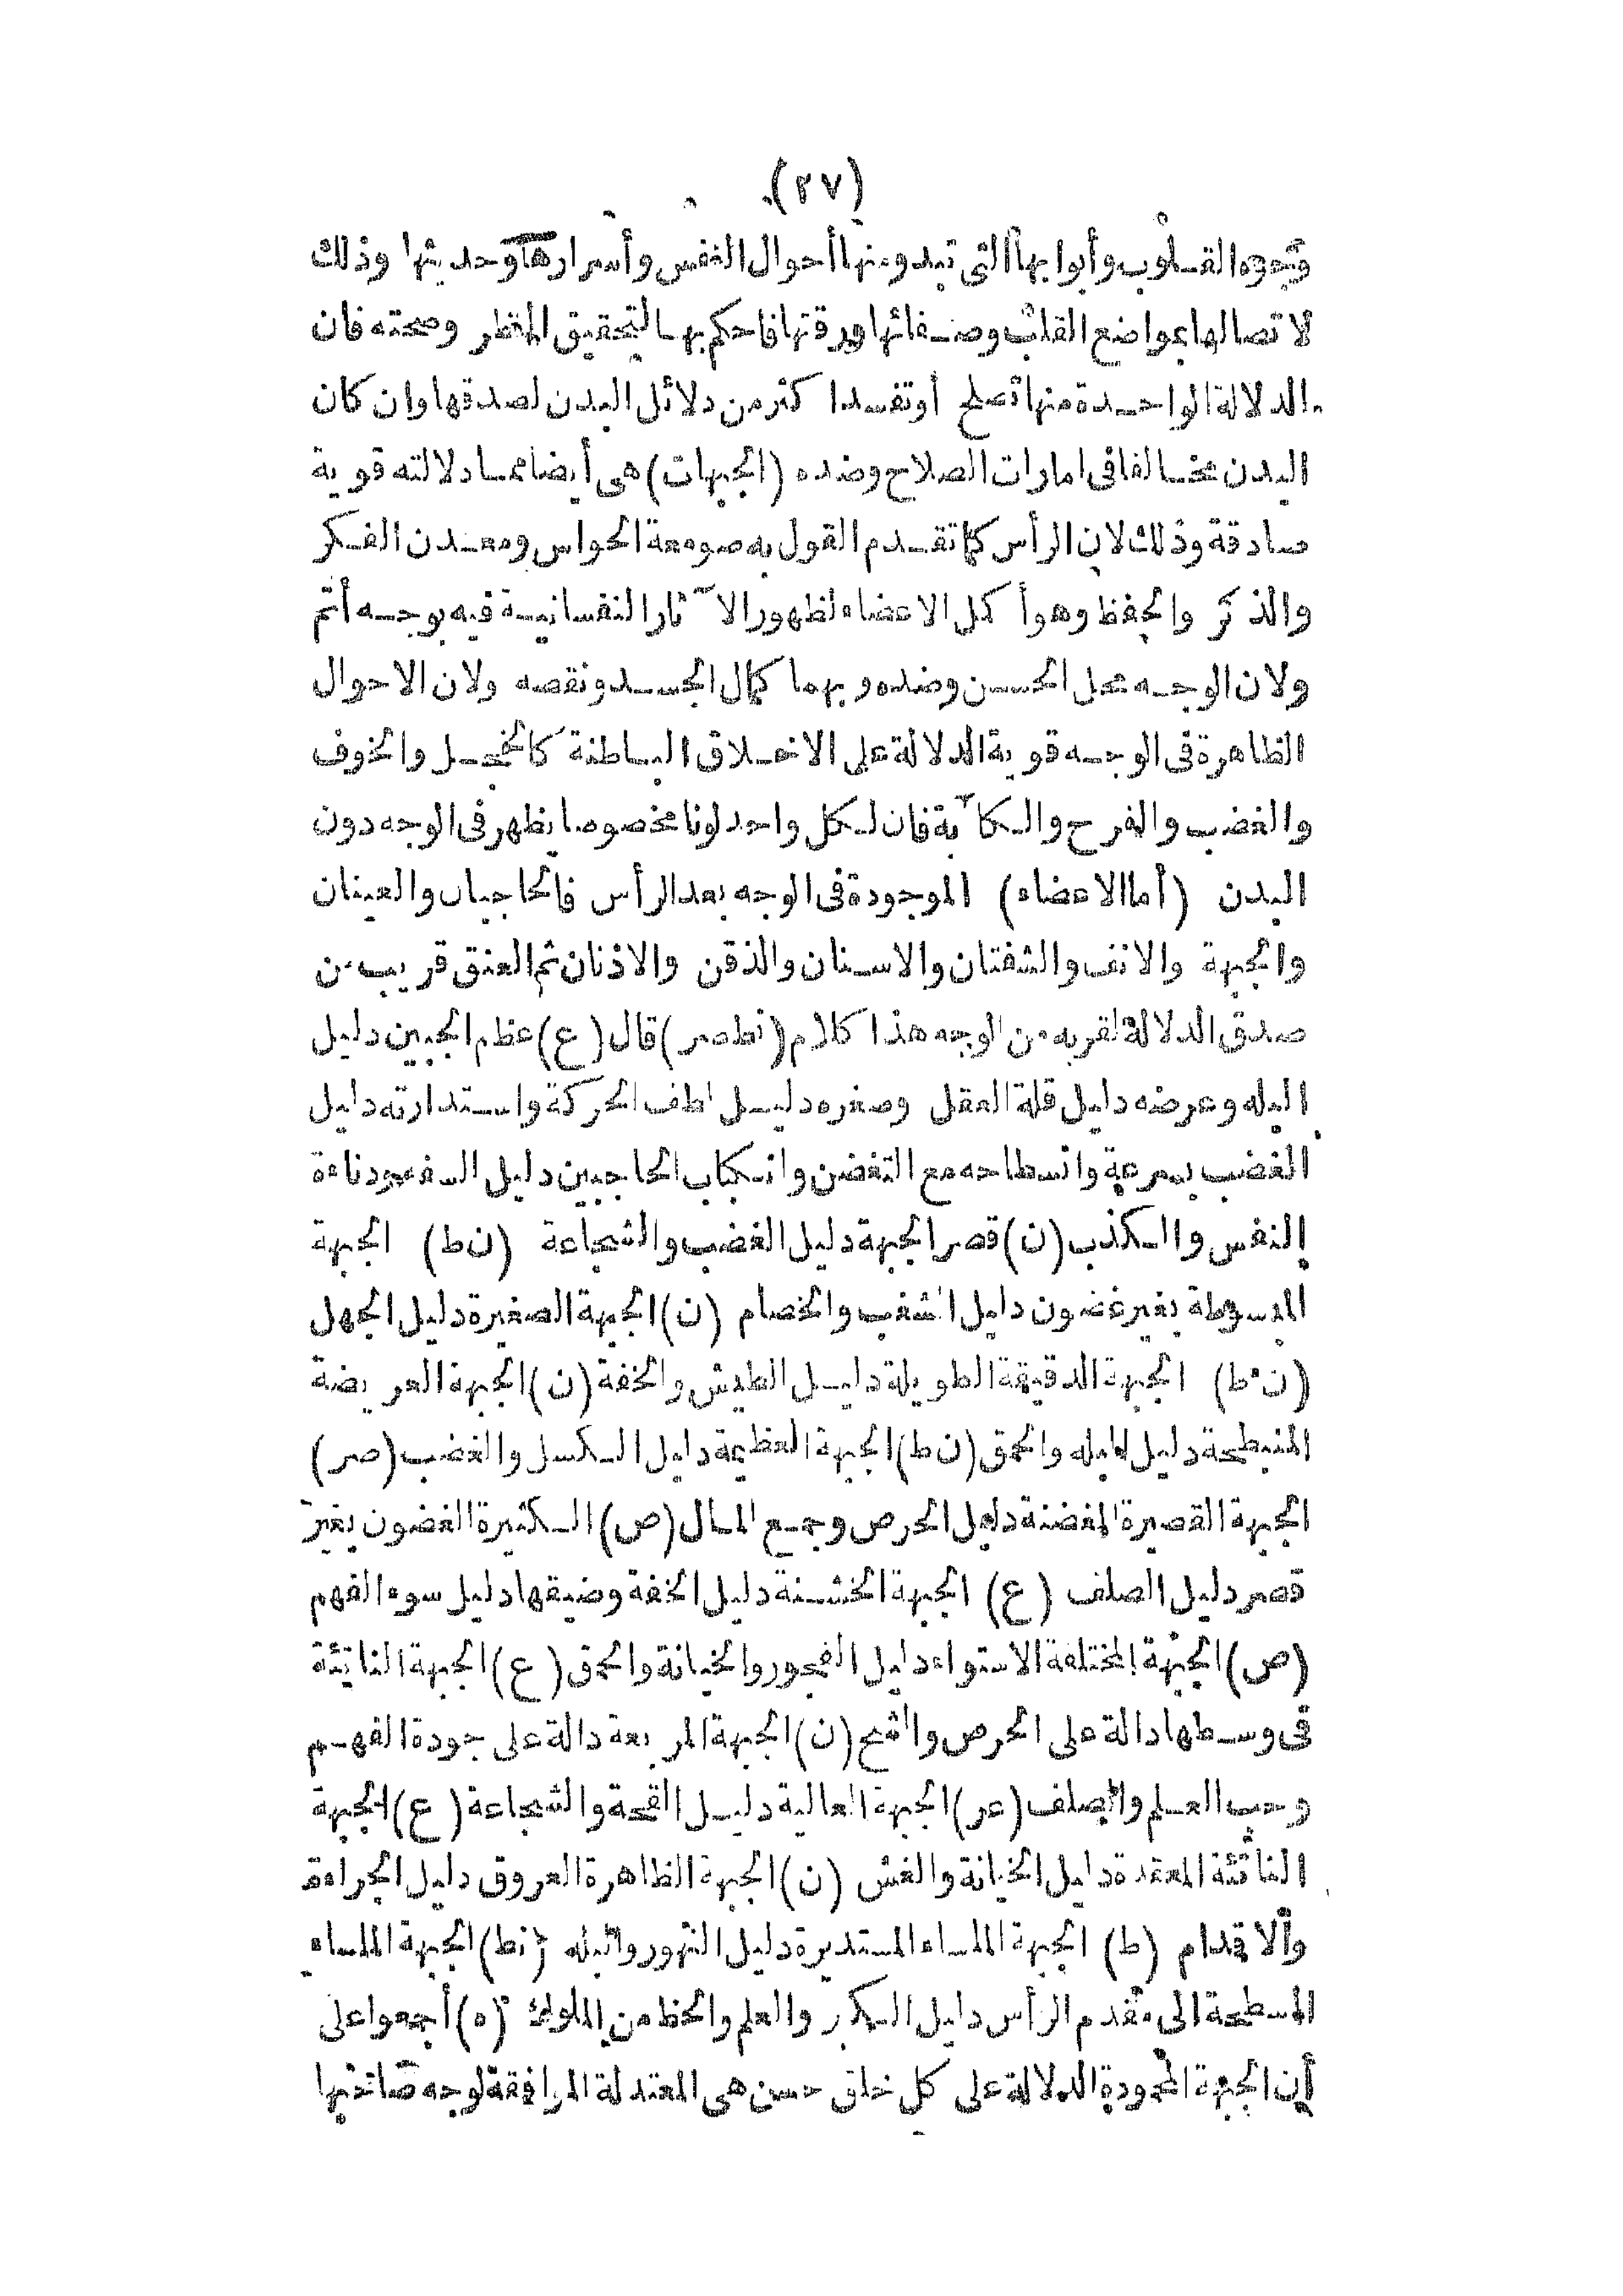 (٢٧)
وجوه القلوب وأبوابها التى تبدو منها أحوال النفس وأسرارها وحديثها وذلك
لاتصالها بمواضع القلب وصفائها ورقتها فاحكم بها لتحقيق النظر وصحته فان
الدلالة الواحدة منها تصلح أو تفسد اكثر من دلائل البدن لصدقها وان كان
البدن مخالفا فى امارات الصلاح وضده (الجبهات) هى أيضا مما دلالته قوية
صادقة وذلك لان الرأس كما تقدم القول به صومعة الحواس ومعدن الفكر
والذكر والحفظ وهو أكمل الاعضاء لظهور الآثار النفسانية فيه بوجه أتم
ولان الوجه محل الحسن وضده وبهما كمال الجسد ونقصه ولان الاحوال
الظاهرة فى الوجه قوية الدلالة على الاخلاق الباطنة كالخجل والخوف
والغضب والفرح والكآبة فان لكل واحد لونا مخصوصا يظهر فى الوجه دون
البدن (أما الاعضاء) الموجودة فى الوجه بعد الرأس فالحاجبان والعينان
والجبهة والانف والشفتان والاسنان والذقن والاذنان ثم العنق قريب من
صدق الدلالة لقربه من الوجه هذا كلام (نطصر) قال (ع) عظم الجبين دليل
البله وعرضه دليل قلة العقل وصغره دليل لطف الحركة واستدارته دليل
الغضب بسرعة وانسطاحه مع التغضن وانكباب الحاجبين دليل السفه ودناءة
النفس والكذب (ن) قصر الجبهة دليل الغضب والشجاعة (نط) الجبهة
المبسوطة بغير غضون دليل الشغب والخصام (ن) الجبهة الصغيرة دليل الجهل
(نط) الجبهة الدقيقة الطويلة دليل الطيش والخفة (ن) الجبهة العريضة
المنبطحة دليل البله والحمق (نط) الجبهة العظيمة دليل الكسل والغضب (صر)
الجبهة القصيرة المغضنة دليل الحرص وجمع المال (ص) الكثيرة الغضون بغير
قصر دليل الصلف (ع) الجبهة الخشنة دليل الخفة وضيقها دليل سوء الفهم
(ص) الجبهة المختلفة الاستواء دليل الفجور والخيانة والحمق (ع) الجبهة الناتئة
فى وسطها دالة على الحرص والشح (ن) الجبهة المربعة دالة على جودة الفهم
وحب العلم والصلف (عر) الجبهة العالية دليل القحة والشجاعة (ع) الجبهة
الناتئة المعقدة دليل الخيانة والغش (ن) الجبهة الظاهرة العروق دليل الجراءة
والاقدام (ط) الجبهة الملساء المستديرة دليل التهور والبله (نط) الجبهة الملساء
المسطحة الى مقدم الرأس دليل المكر والعلم والحظ من الملوك (ه) أجمعوا على
أن الجبهة المحمودة الدلالة على كل خلق حسن هى المعتدلة الموافقة لوجه صاحبها